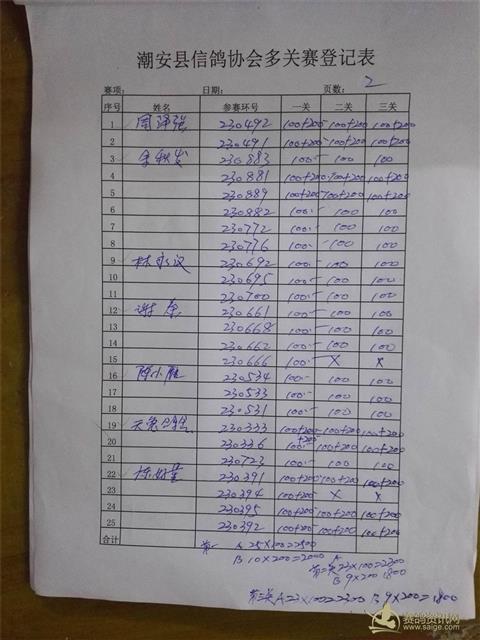 潮安县信鸽协会多关赛登记表
赛项： 日期： 页数： 2
序号 姓名 参赛环号 一关 二关 三关
1 230492 100+200 100+200 100+200
2 230491 100+200 100+200 100+200
3 230883 100 100 100
4 230881 100+200 100+200 100+200
5 230889 100+200 100+200 100+200
6 230882 100 100 100
7 230772 100 100 100
8 230776 100 100 100
9 林永汉 230692 100 100 100
10 230695 100 100 100
11 230700 100 100 100
12 230661 100 100 100
13 230668 100 100 100
14 230662 100 100 100
15 230666 100 X X
16 陈小 230534 100 100 100
17 230533 100 100 100
18 230531 100 100 100
19 230333 100+200 100+200 100+200
20 230336 100+200 100+200 100+200
21 230723 100 100 100
22 230391 100+200 100+200 100+200
23 230394 100+200 X X
24 230395 100+200 100+200 100+200
25 230392 100+200 100+200 100+200
合计 第一 A 25×100=2500
B 10×200=2000
第二关 A 23×100=2300
B 9×200 1800
第三关 A 23×100=2300 B 9×200=1800
赛鸽资讯网
www.saige.com